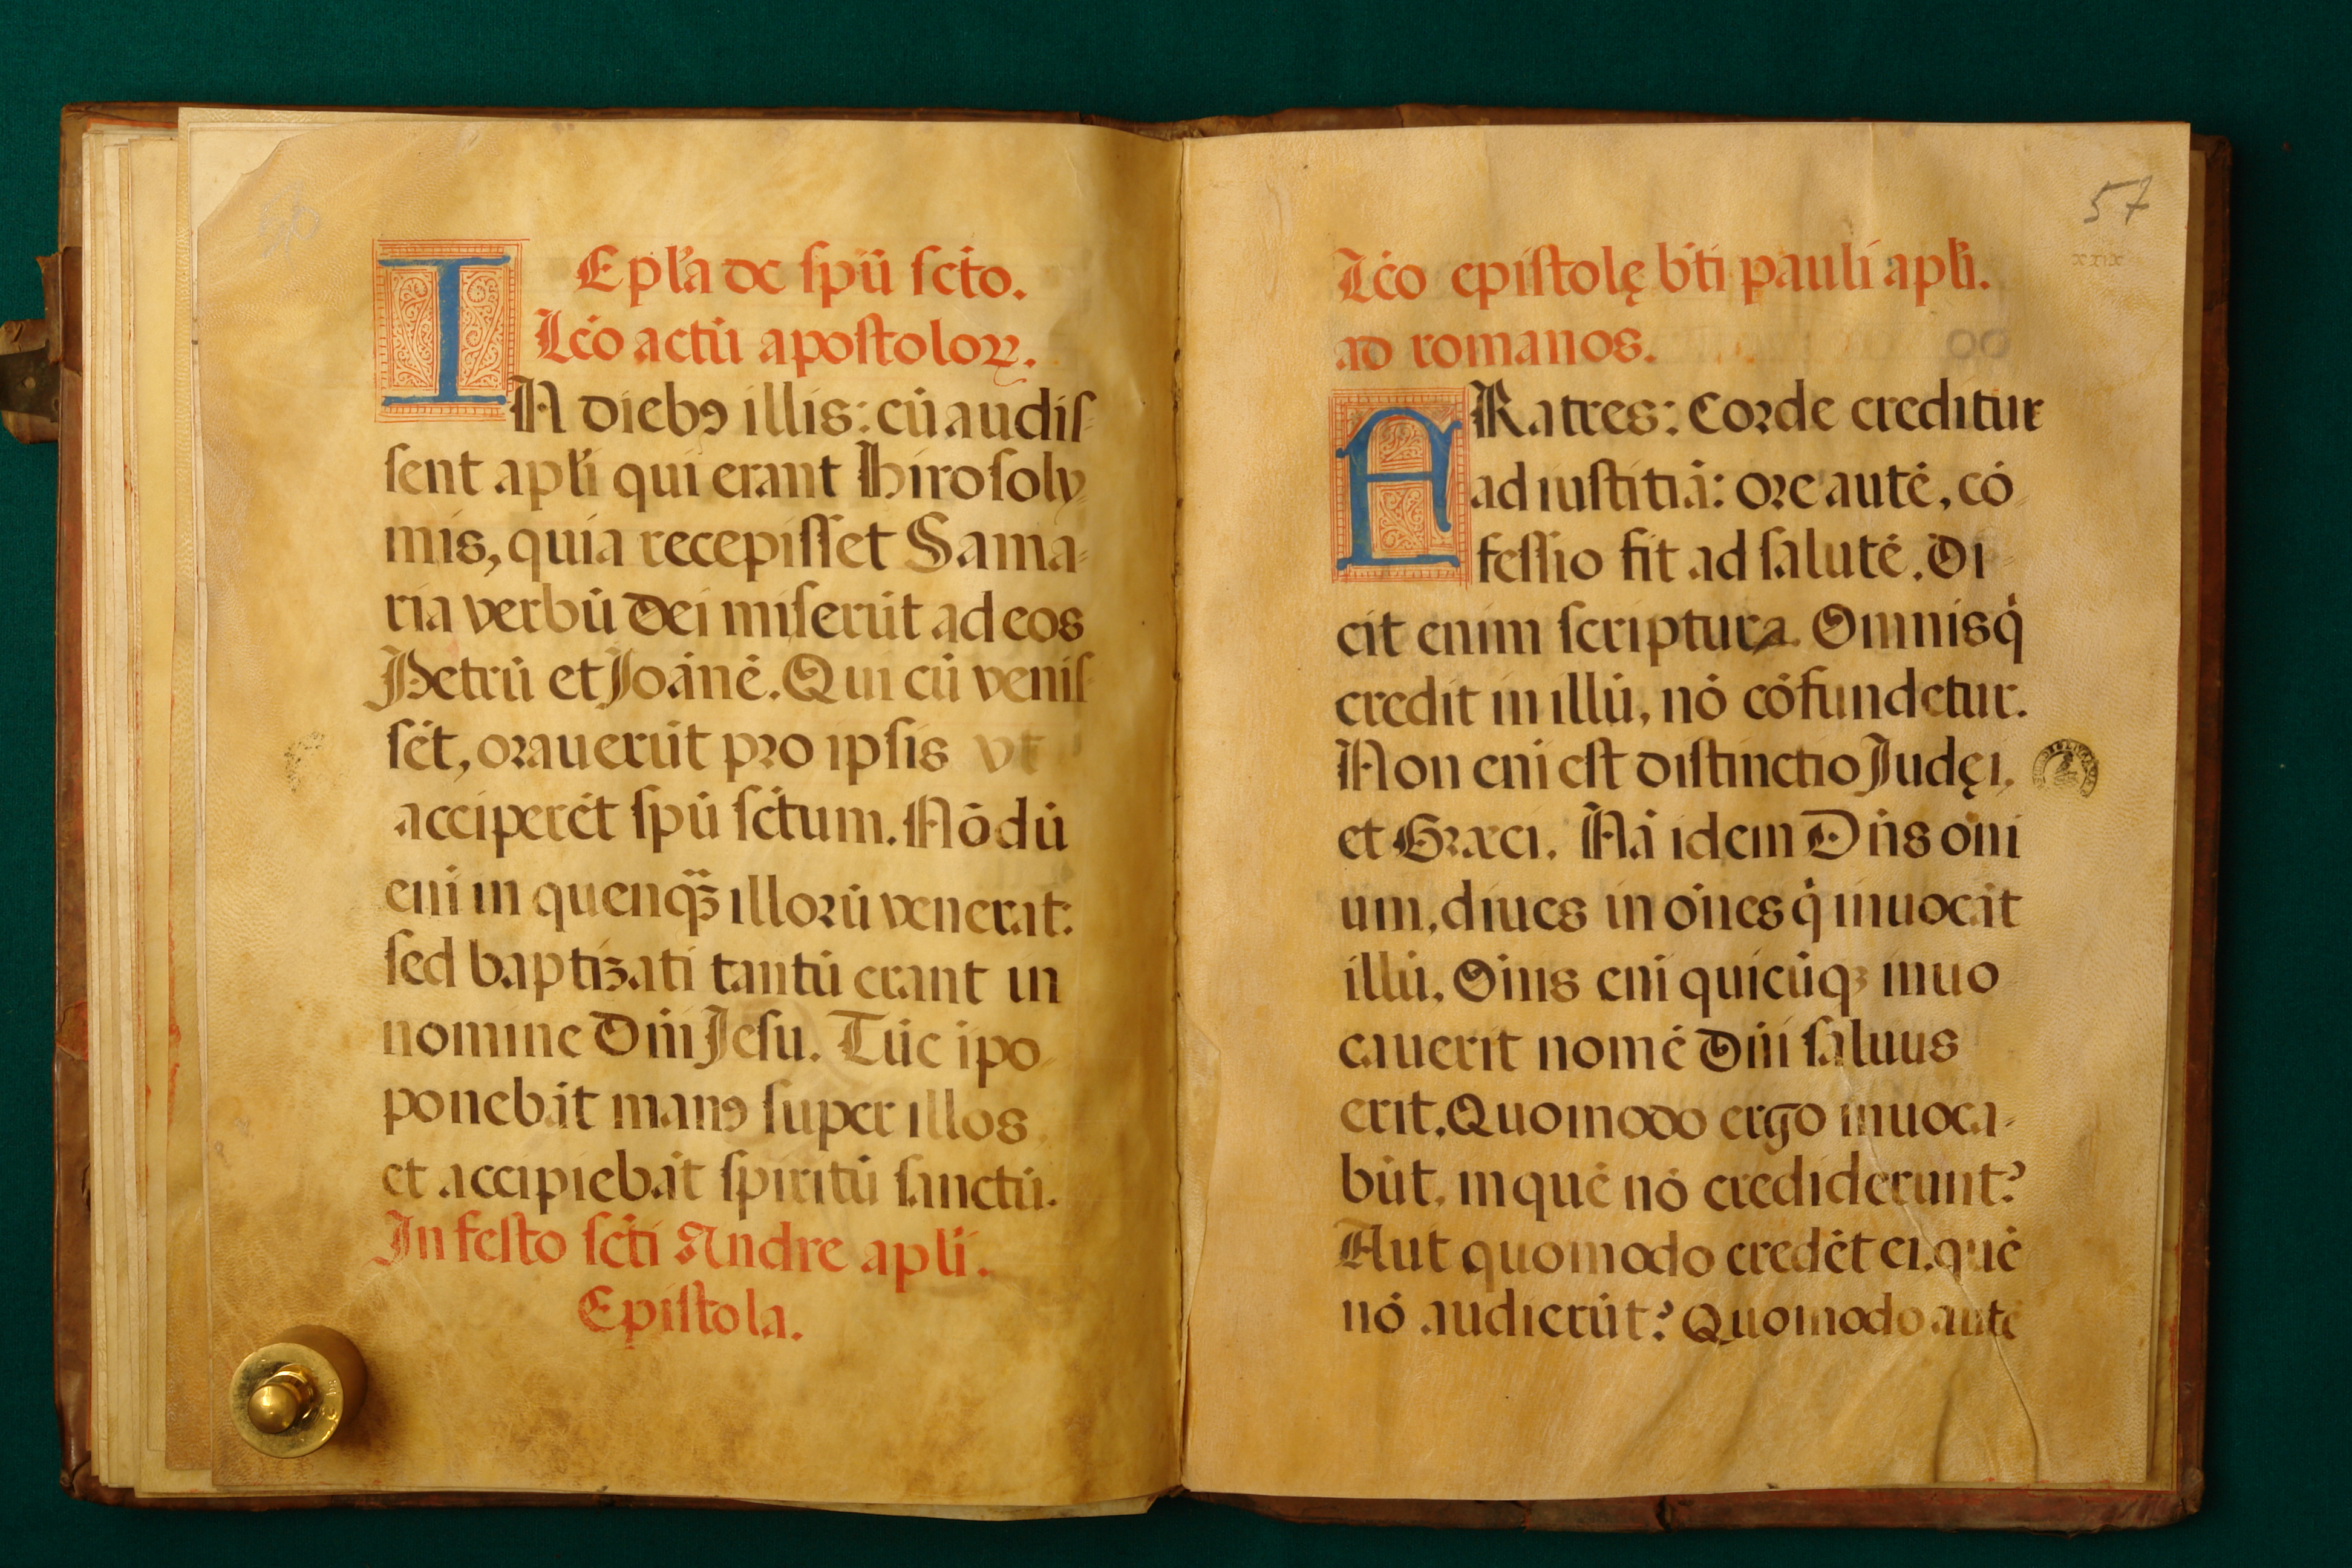 Epl̃a de ſpũ ſcto.
Lc̃o actũ apoſtoloꝝ.
IN diebꝰ illis: cũ audiſ-
ſent apl̃i qui erant Hiroſoly
mis, quia recepiſſet Sama-
ria verbũ Dei miſerũt ad eos
Petrũ et Joãnẽ. Qui cũ veniſ-
ſẽt, orauerũt pro ipſis vt
acciperẽt ſpũ ſctum. Nõ dũ
enĩ in quenqꝫ̃ illorũ venerat:
ſed baptizati tantũ erant in
nomine Dñi Jeſu. Tũc ipo
ponebãt manꝰ ſuper illos
et accipiebãt ſpiritũ ſanctũ.
In feſto ſcti Andre apl̃i.
Epiſtola.
57
xxix
Lc̃o epiſtolę bt̃i pauli apl̃i.
ad romanos.
FRatres: Corde creditur
ad iuſtitiã: ore autẽ, cõ
feſſio fit ad ſalutẽ. Di-
cit enim ſcriptura. Omnis q̃
credit in illũ, nõ cõfundetur.
Non enĩ eſt diſtinctio Judęi,
et Græci. Nã idem Dñs oñi
um, diues in oẽs q̃ inuocãt
illũ. Oĩns enĩ quicũqꝫ inuo
cauerit nomẽ Dñi ſaluus
erit. Quomodo ergo inuoca-
bũt, in quẽ nõ crediderunt?
Aut quomodo credẽt ei, quẽ
nõ audierũt? Quomodo autẽ